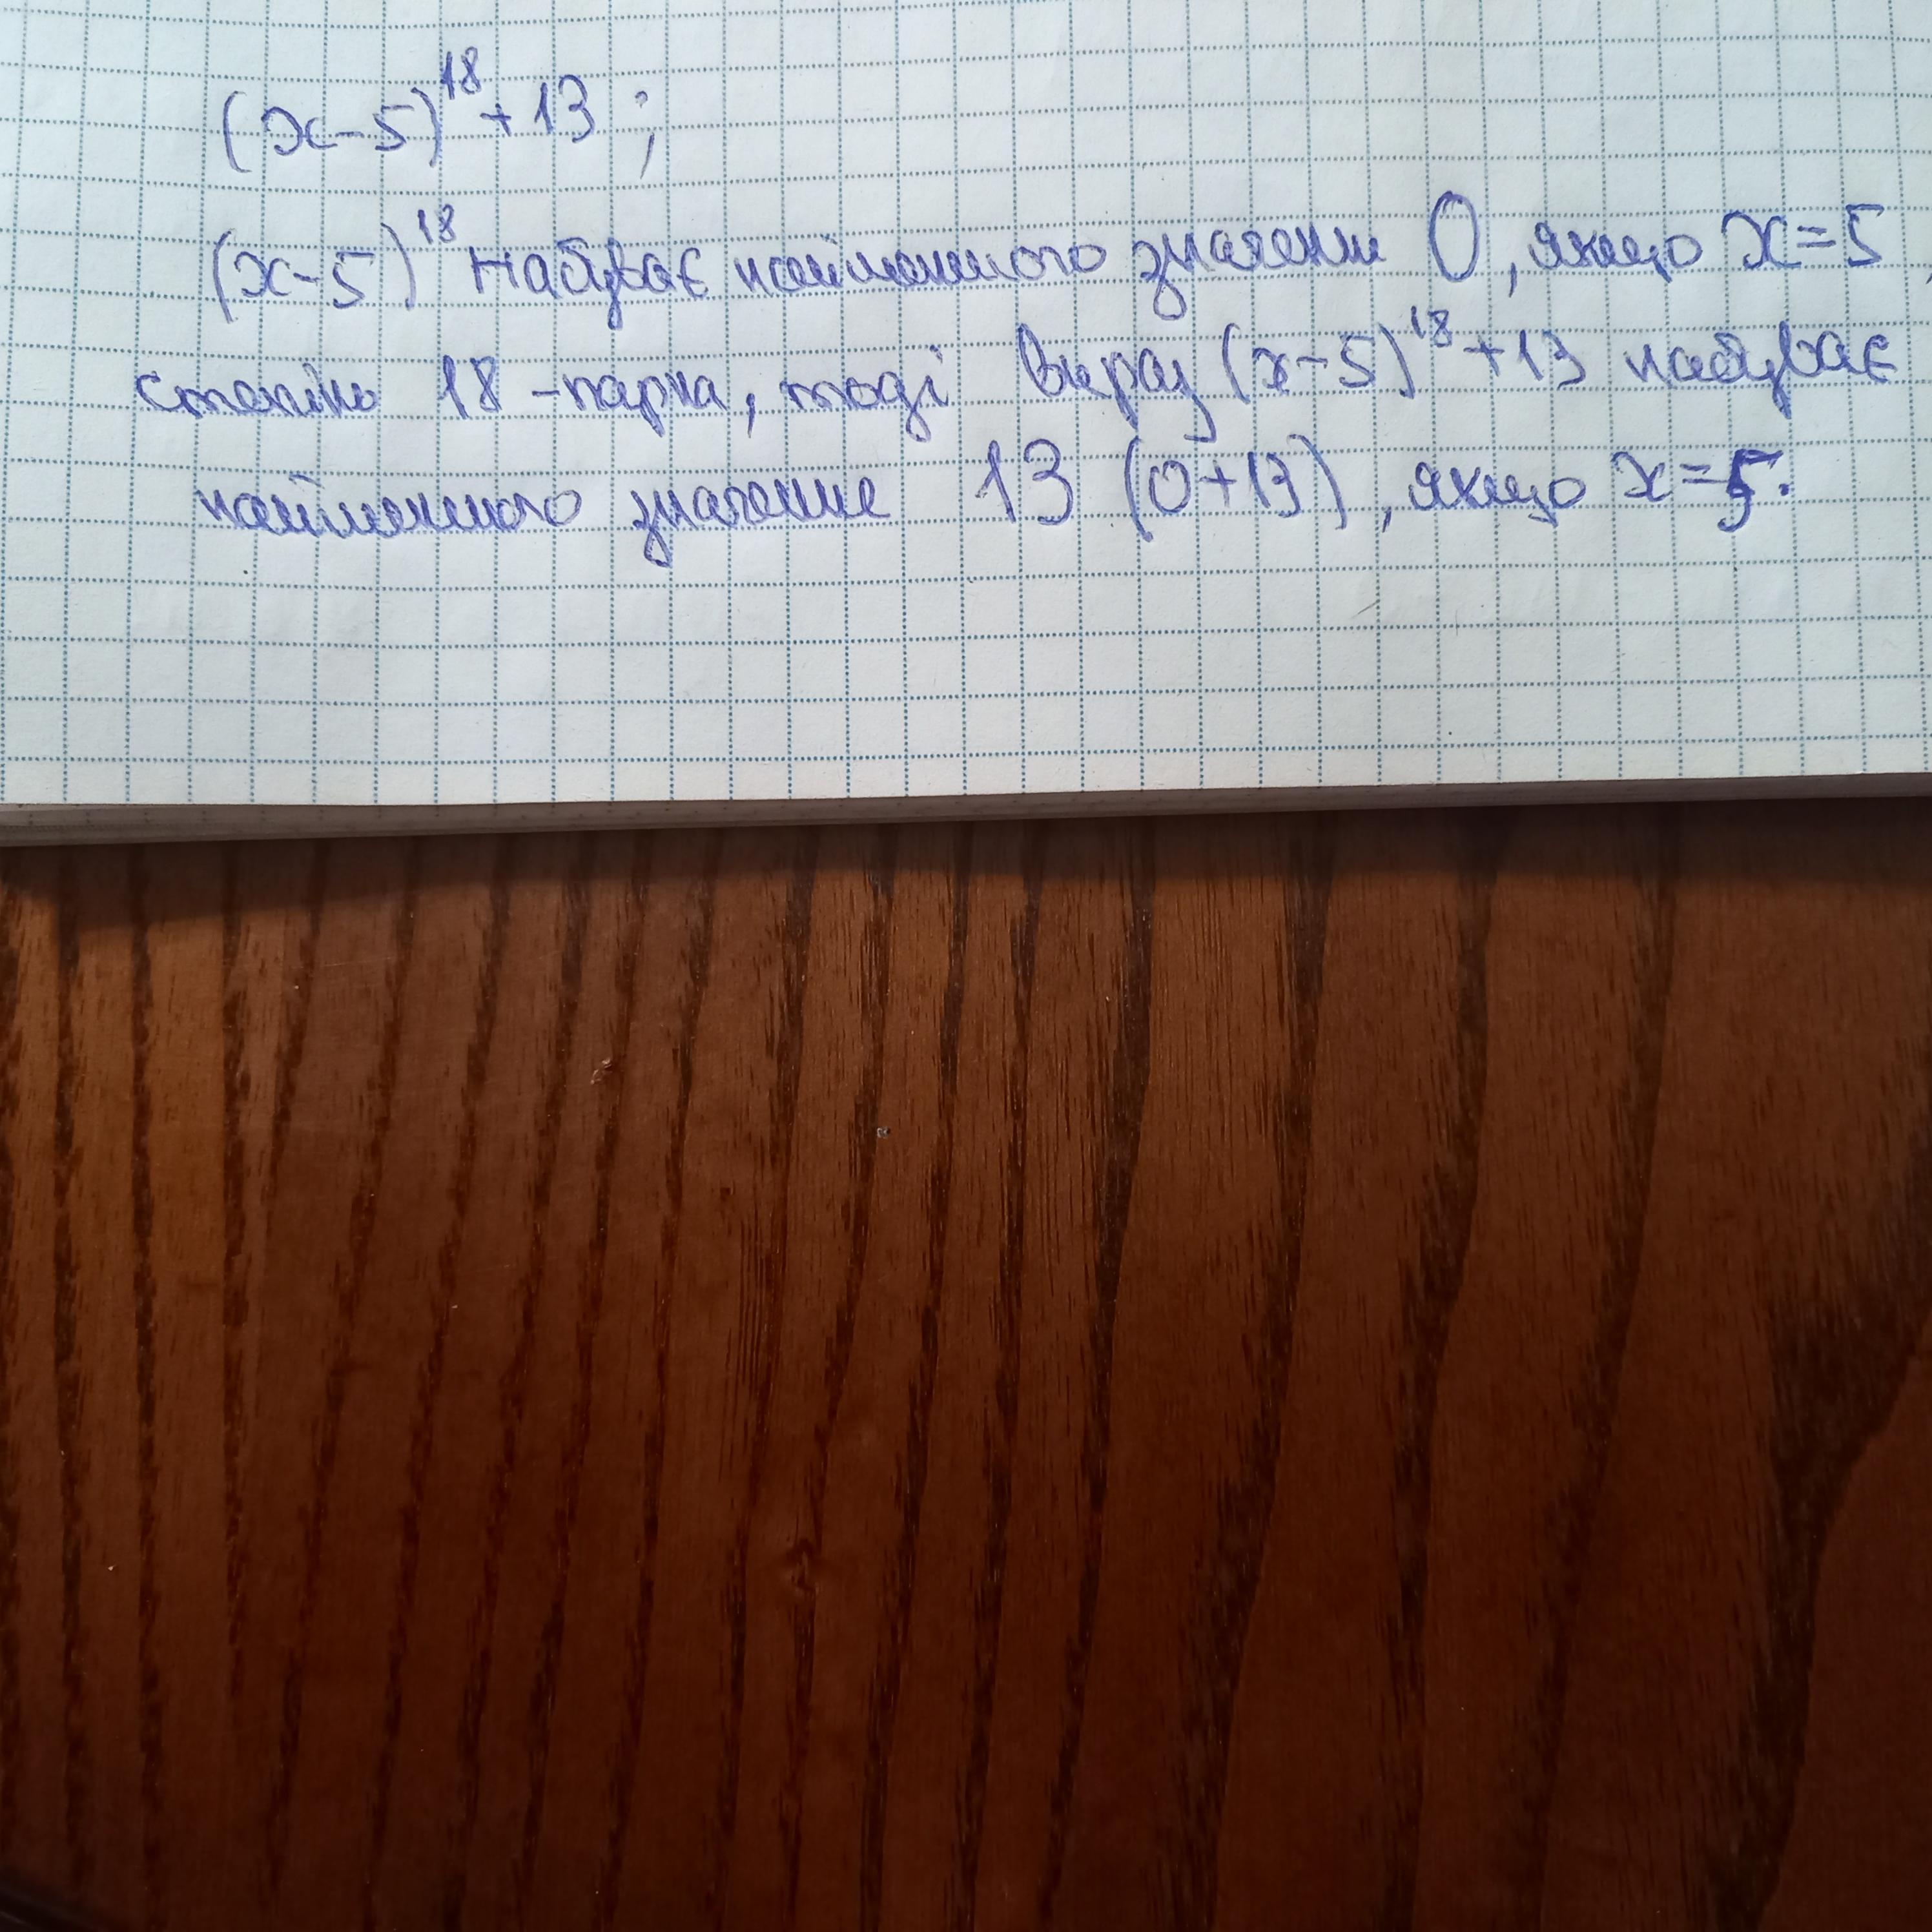 (x-5)^18 + 13 ;
(x-5)^18 набуває найменшого значення 0, якщо x=5,
степінь 18 - парна, тоді вираз (x-5)^18 + 13 набуває
найменшого значення 13 (0+13), якщо x=5.